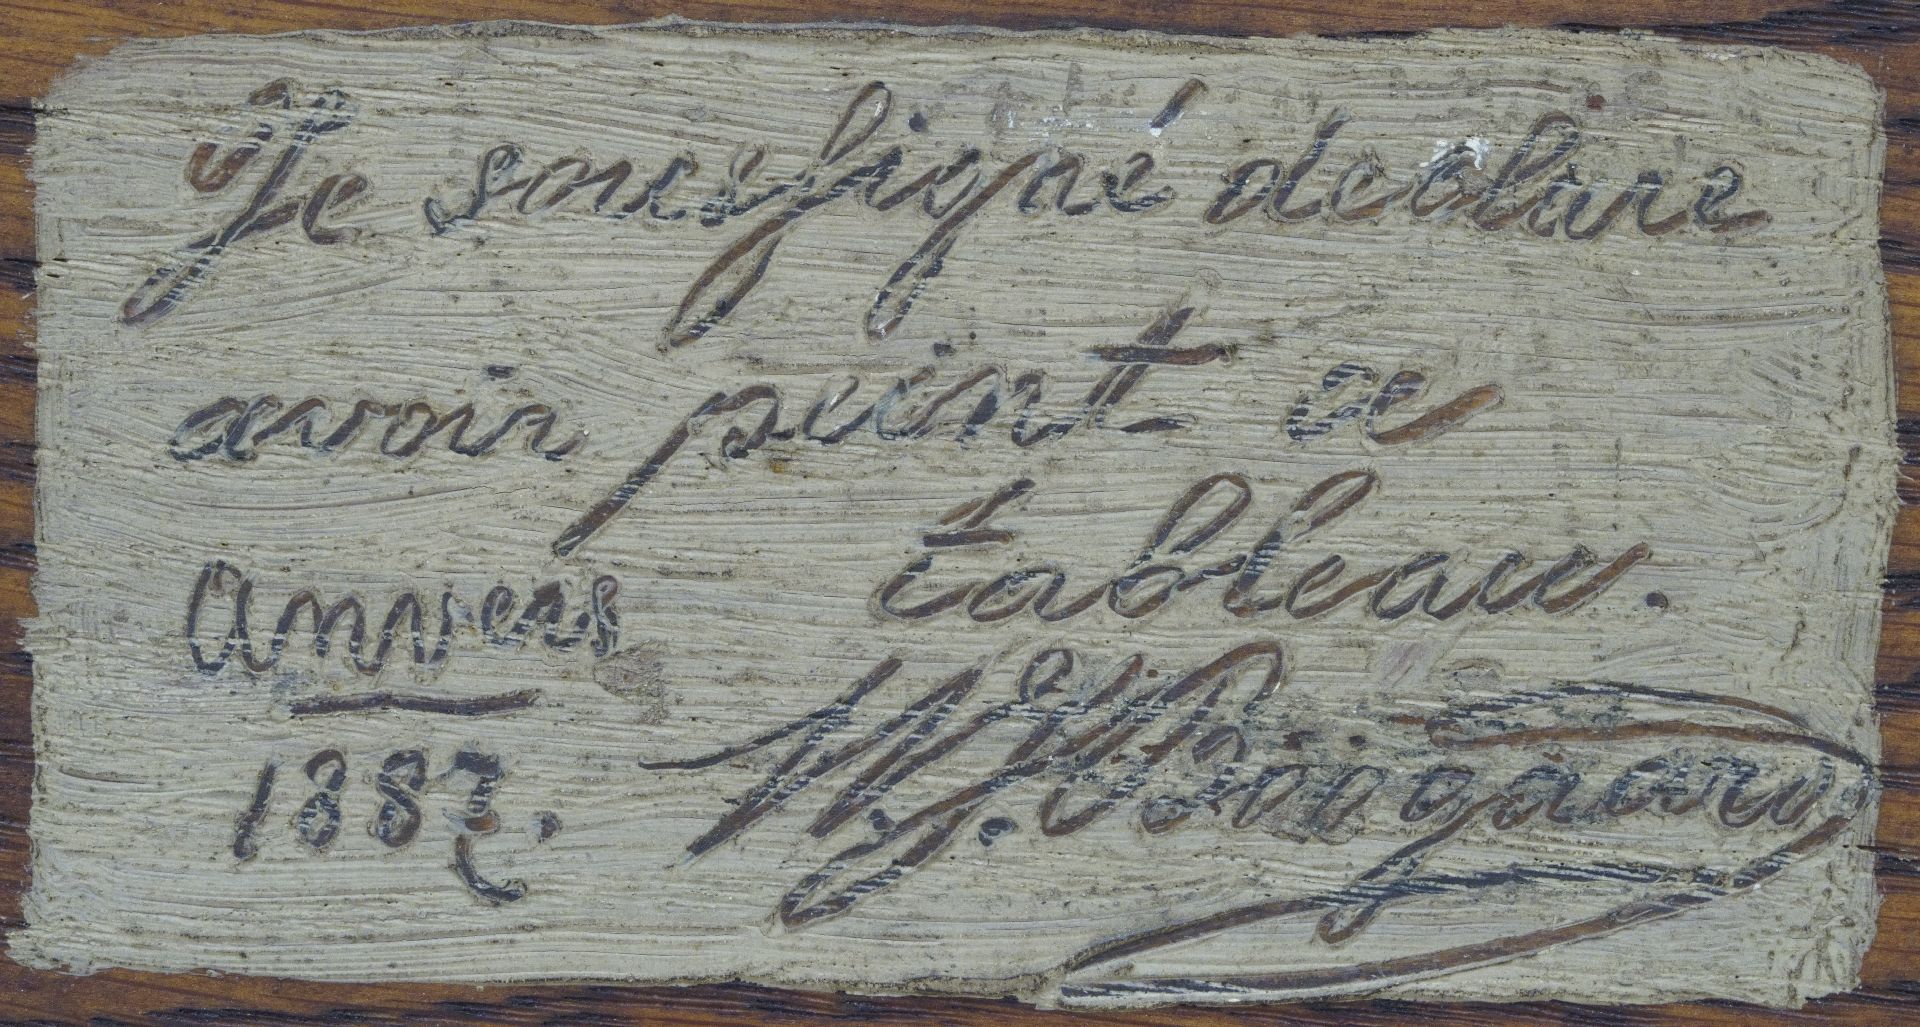 Je sousſigné declare
avoir peint ce
tableau.
Anvers
1887. W. J. Boogaard